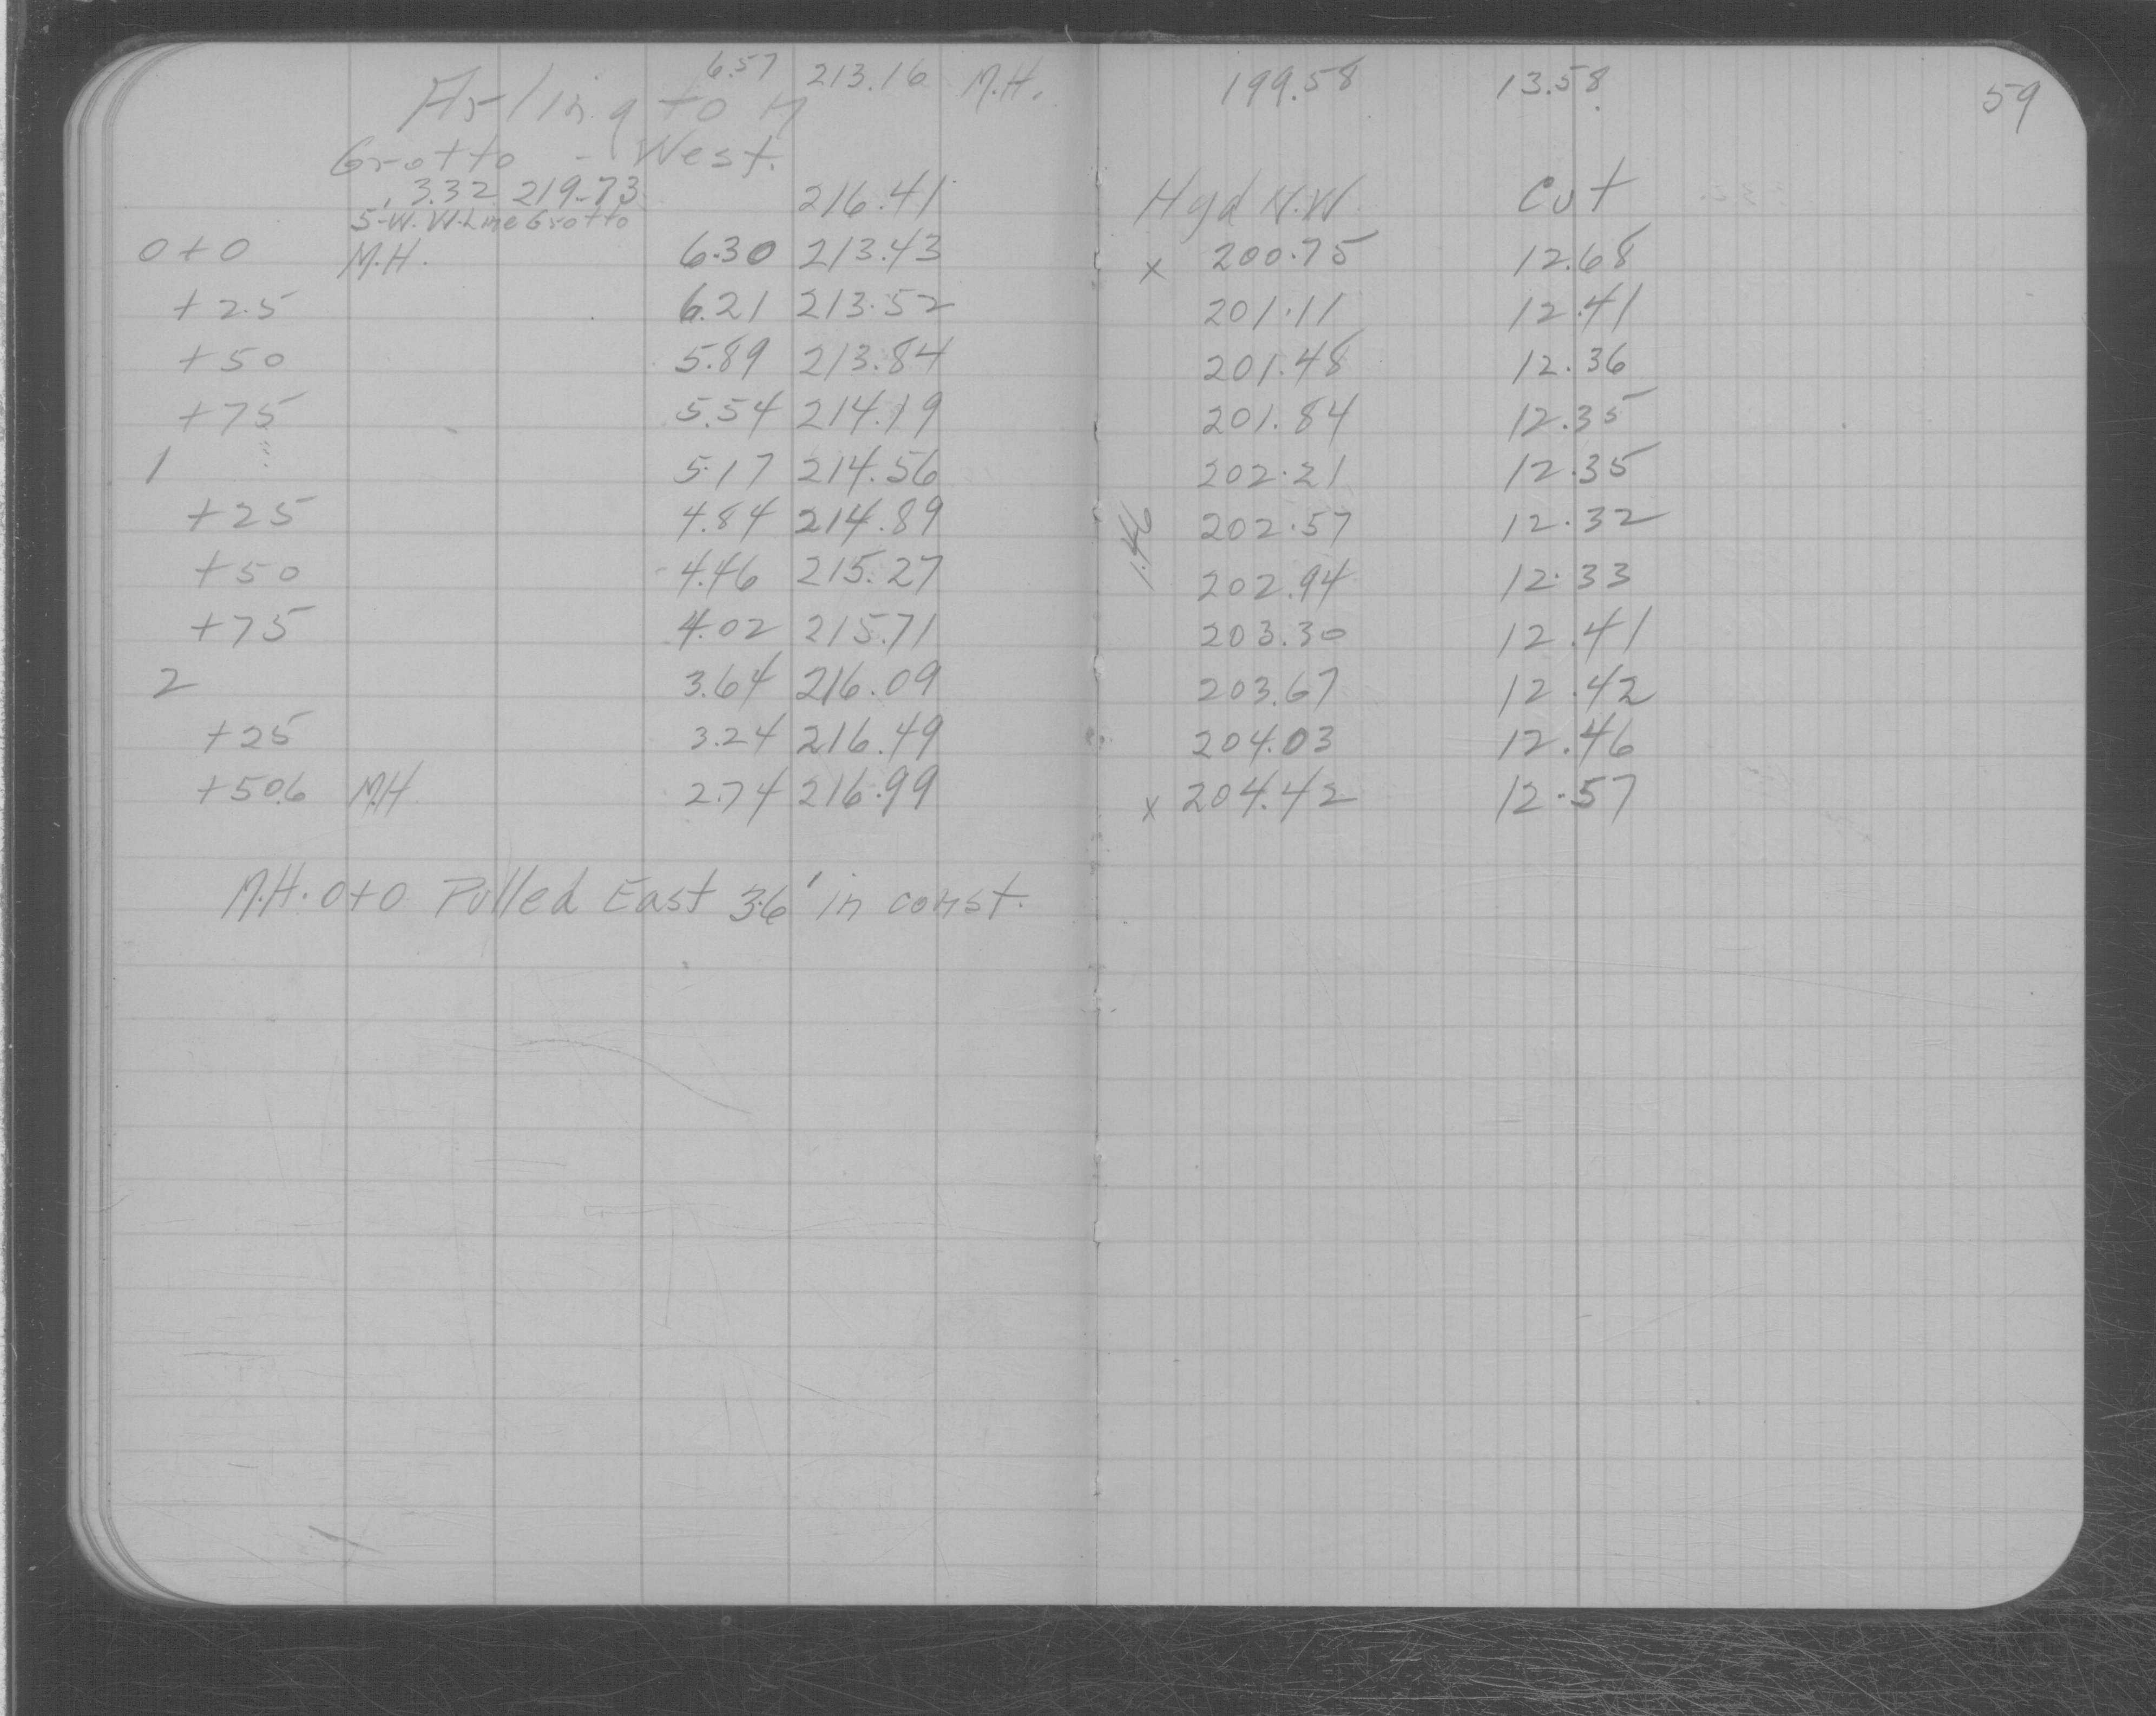 6.57 213.16 M.H. 199.58 13.58 59
Arlington
Grotto - West.
3.32 219.73 216.41 Hyd N.W. Cut
S-W. W. Line Grotto
0+0 M.H. 6.30 213.43 x 200.75 12.68
+25 6.21 213.52 201.11 12.41
+50 5.89 213.84 201.48 12.36
+75 5.54 214.19 201.84 12.35
1 5.17 214.56 202.21 12.35
+25 4.84 214.89 1.46 202.57 12.32
+50 4.46 215.27 202.94 12.33
+75 4.02 215.71 203.30 12.41
2 3.64 216.09 203.67 12.42
+25 3.24 216.49 204.03 12.46
+50.6 M.H 2.74 216.99 x 204.42 12.57
M.H. 0+0 Pulled East 3.6' in const.